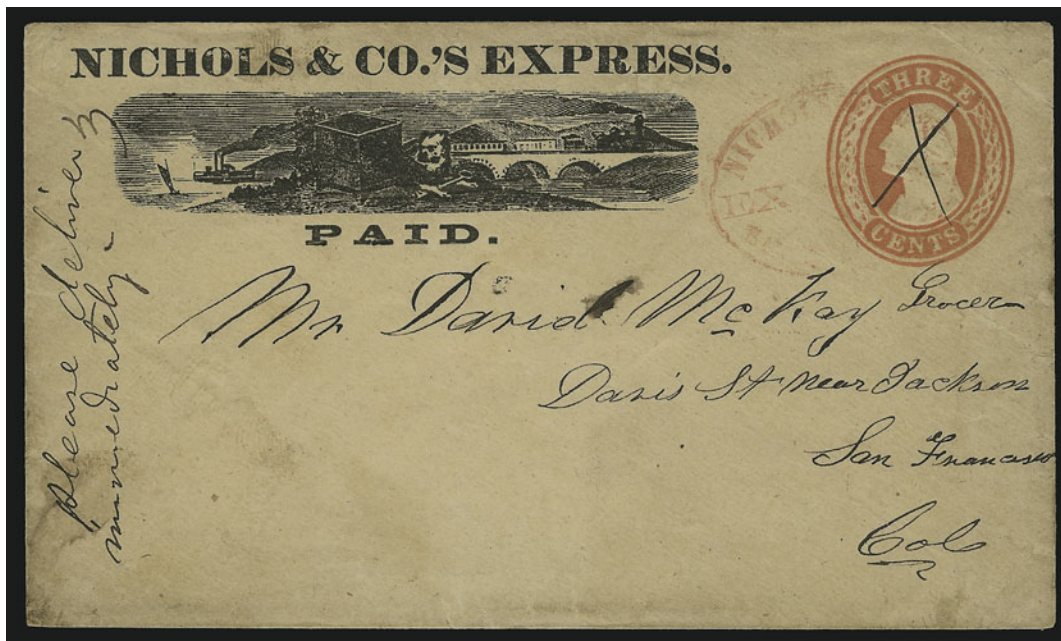 NICHOLS & CO.'S EXPRESS.
PAID.
THREE
CENTS
NICHOLS
EX
Please deliver
immediately
Mr. David McKay Grocer
Davis St near Jackson
San Francisco
Cal